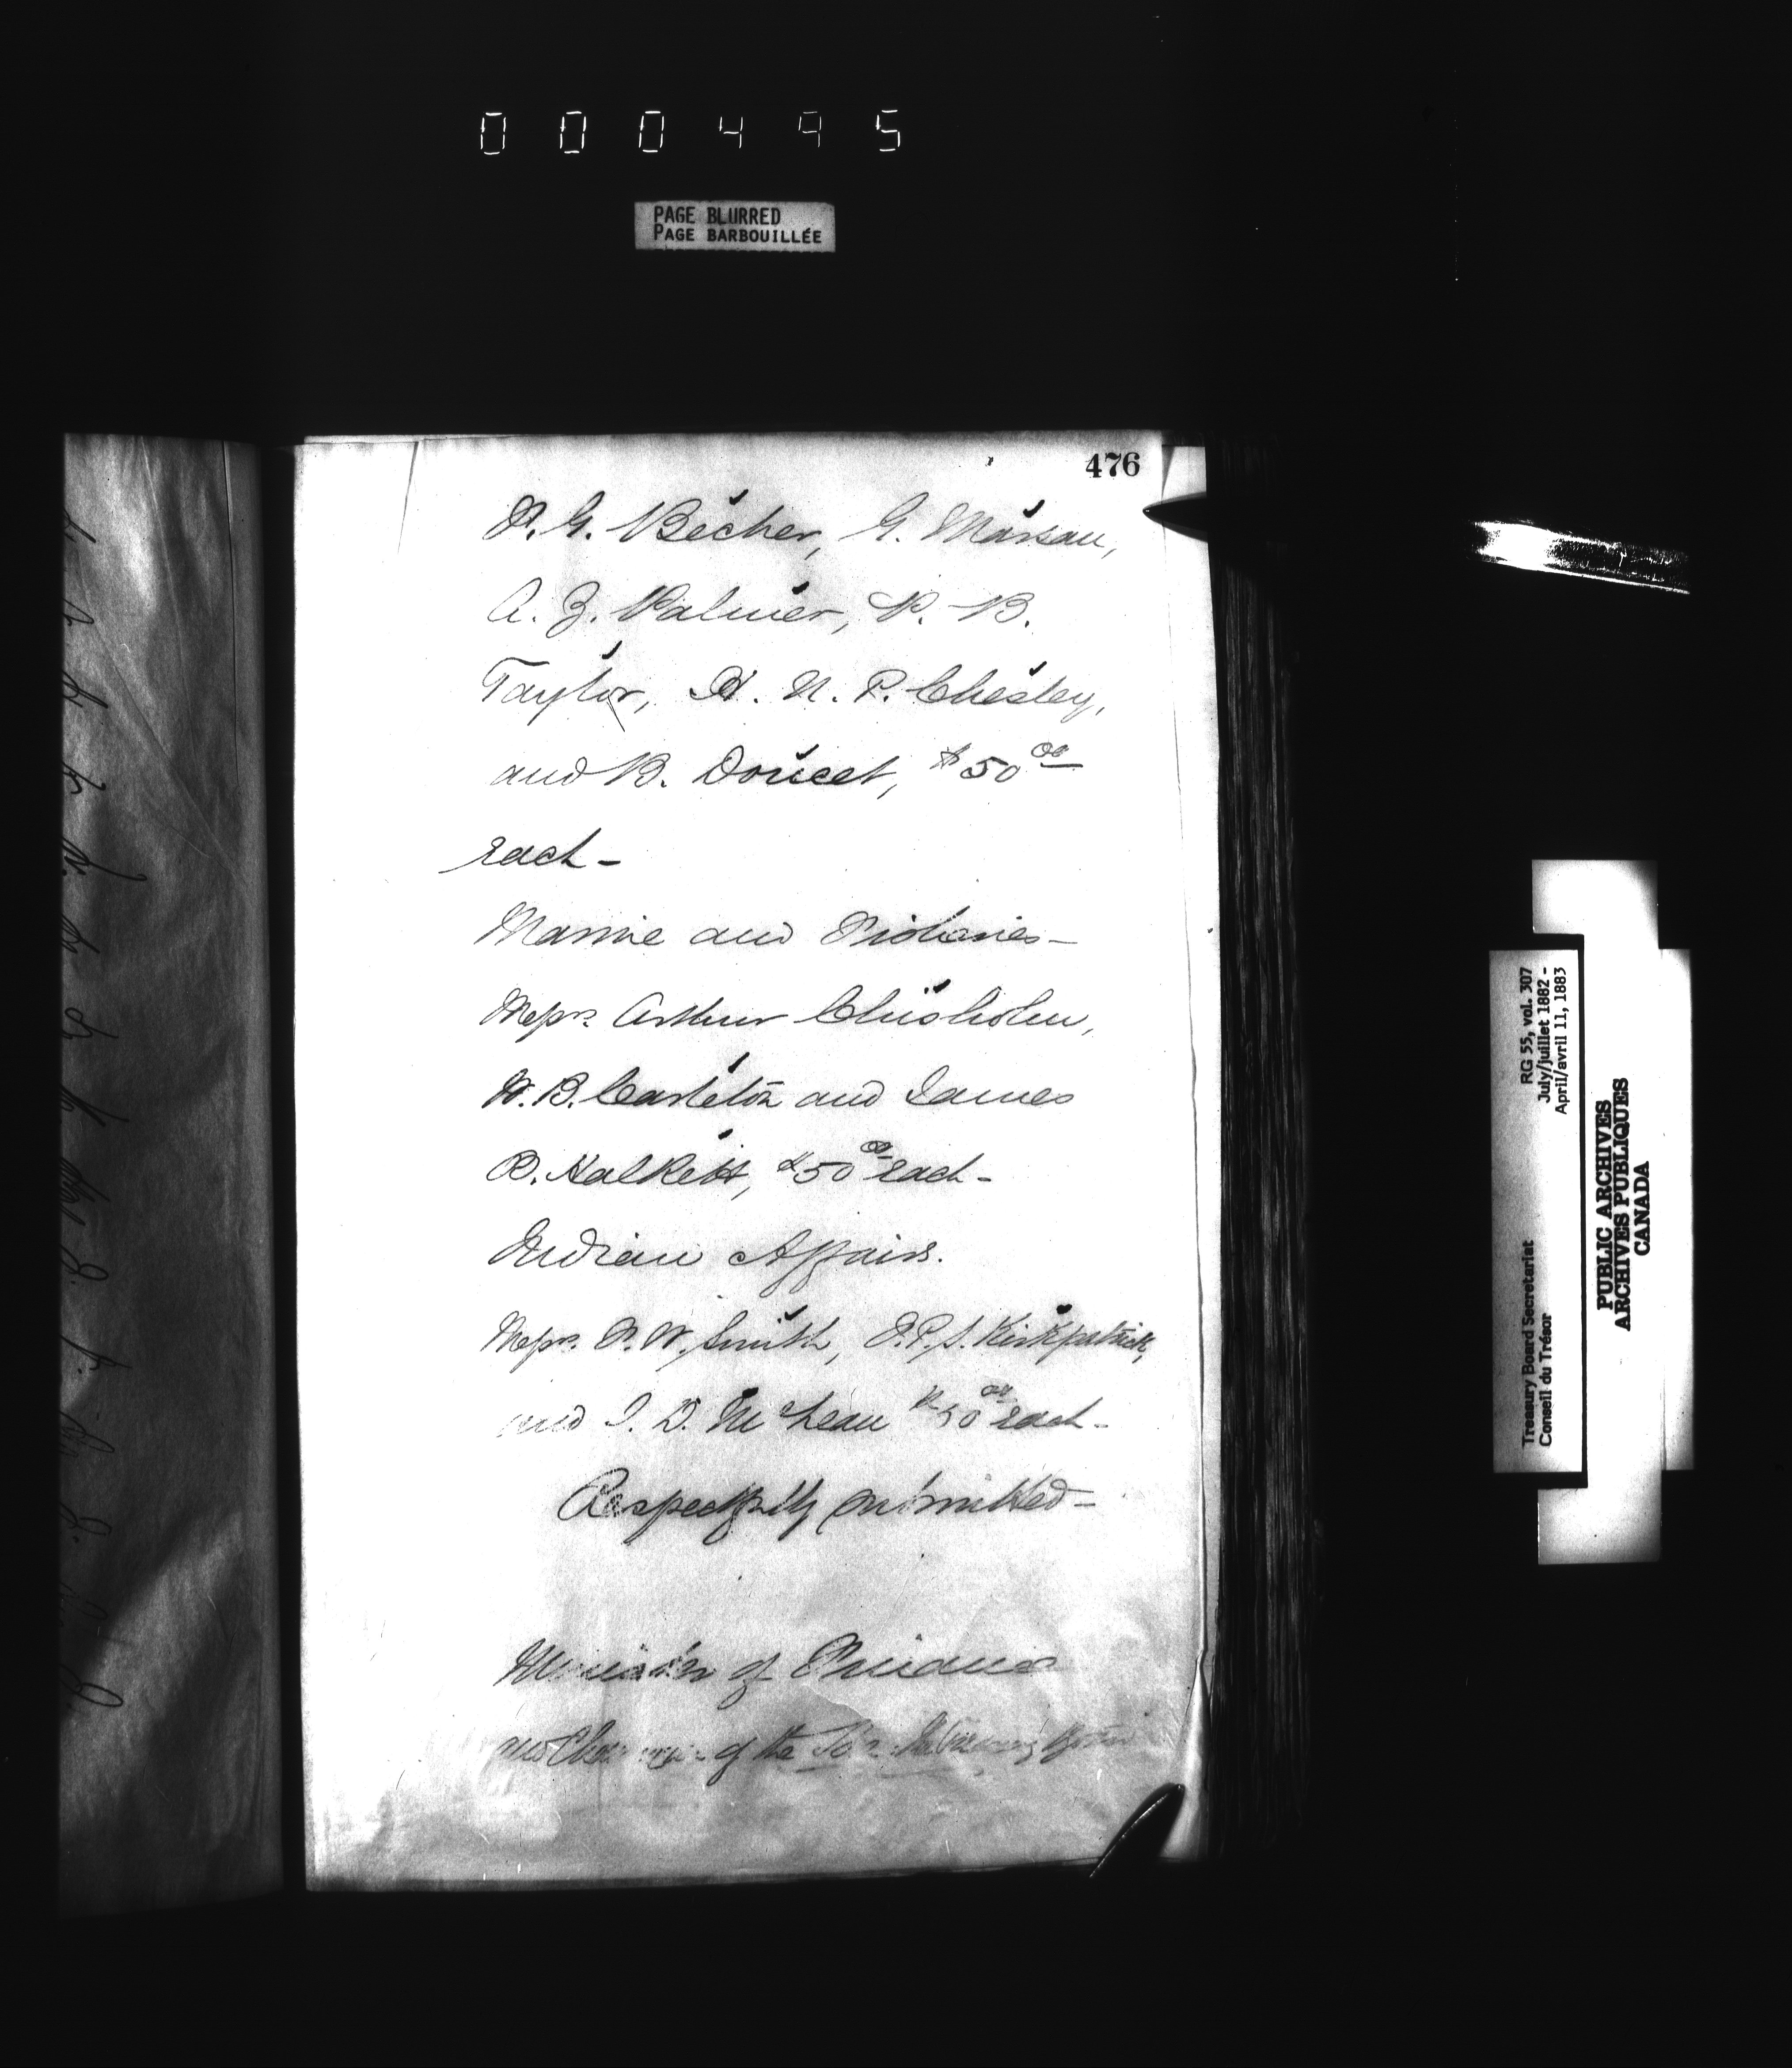 000495
PAGE BLURRED
PAGE BARBOUILLÉE
476
G. Becher, G. Marsau,
A. Z. Palmer, P. B.
Taylor, H. N. P. Chesley,
and B. Doucet, $50 00
each -
Marine and Fisheries -
Messrs Arthur Chisholm,
W. B. Carleton and James
B. Halkett, $50 00 each -
Indian Affairs.
Messrs F. W. Smith, J. P. S. Kirkpatrick,
and J. D. McLean $50 00 each -
Respectfully submitted -
Minister of Finance
and Chairman of the Treasury Board
RG 55, vol. 307
July/juillet 1882 -
April/avril 11, 1883
Treasury Board Secretariat
Conseil du Trésor
PUBLIC ARCHIVES
ARCHIVES PUBLIQUES
CANADA